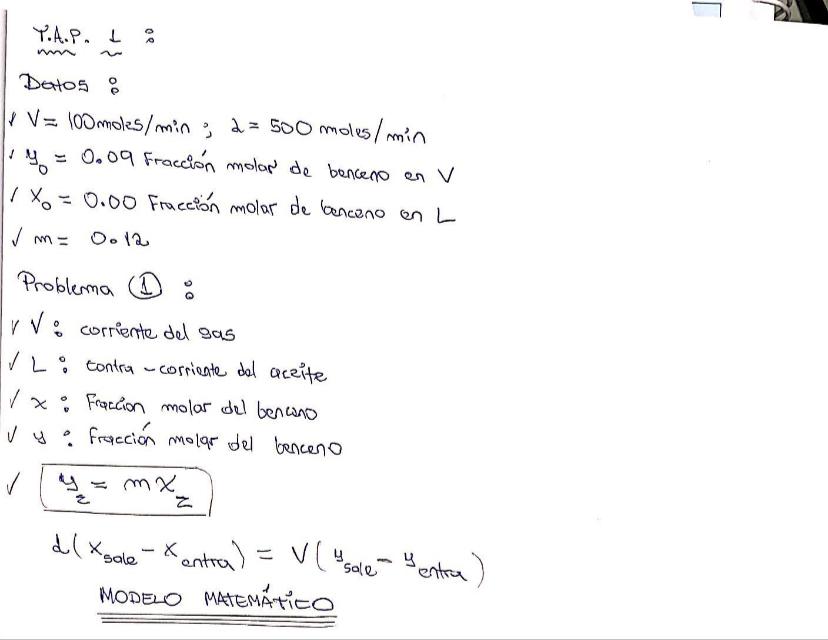 T.A.P. 1 :
Datos :
✓ V = 100 moles/min ; L = 500 moles/min
✓ y₀ = 0.09 Fracción molar de benceno en V
✓ X₀ = 0.00 Fracción molar de benceno en L
✓ m = 0.12
Problema ① :
✓ V : corriente del gas
✓ L : contra-corriente del aceite
✓ x : Fraccion molar del benceno
✓ y : Fracción molar del benceno
✓ y_z = m x_z
L(x_sale - x_entra) = V(y_sale - y_entra)
MODELO MATEMÁTICO